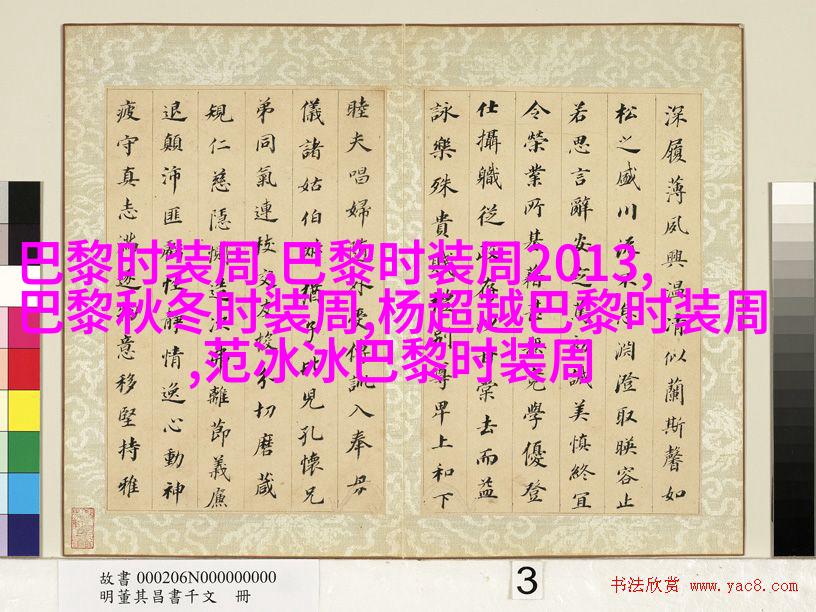 深履薄夙興溫凊似蘭斯馨如
松之盛川流不息淵澄取暎容止
若思言辭安定篤初誠美慎終宜
令榮業所基籍甚無竟學優登
仕攝職從政存以甘棠去而益
詠樂殊貴賤禮別尊卑上和下
睦夫唱婦隨外受傅訓入奉母
儀諸姑伯叔猶子比兒孔懷兄
弟同氣連枝交友投分切磨箴
規仁慈隱惻造次弗離節義廉
退顛沛匪虧性靜情逸心動神
疲守真志滿逐物意移堅持雅
巴黎时装周,巴黎时装周2013,
巴黎秋冬时装周,杨超越巴黎时装周
,范冰冰巴黎时装周
故書 000206N000000000
明董其昌書千文 冊
3
书法欣赏 www.yac8.com